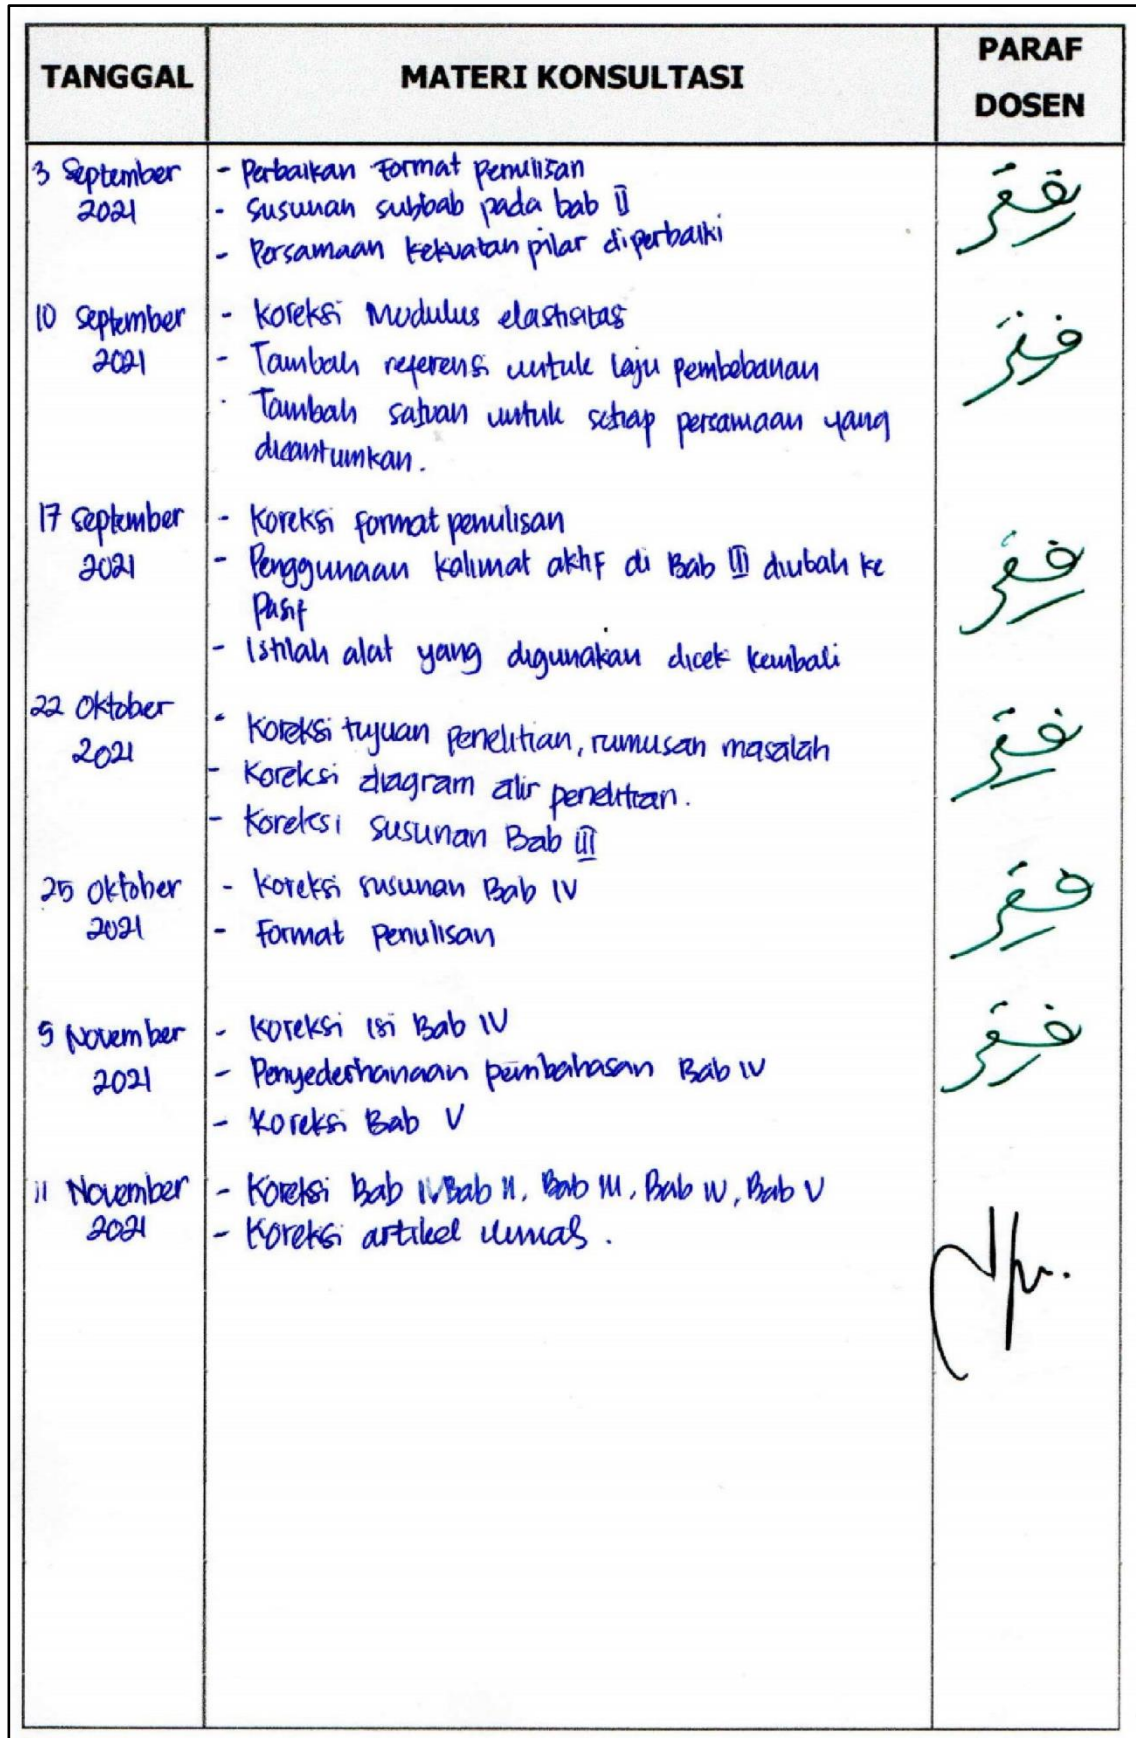 TANGGAL
MATERI KONSULTASI
PARAF
DOSEN
3 September
2021
- Perbaikan Format Penulisan
- Susunan subbab pada bab II
- Persamaan kekuatan pilar diperbaiki
10 September
2021
- Koreksi Modulus elastisitas
- Tambah referensi untuk laju pembebanan
- Tambah satuan untuk setiap persamaan yang
dicantumkan.
17 September
2021
- Koreksi format penulisan
- Penggunaan kalimat aktif di Bab III diubah ke
Pasif
- Istilah alat yang digunakan dicek kembali
22 Oktober
2021
- Koreksi tujuan penelitian, rumusan masalah
- Koreksi diagram alir penelitian.
- Koreksi susunan Bab III
25 Oktober
2021
- Koreksi susunan Bab IV
- Format Penulisan
5 November
2021
- Koreksi isi Bab IV
- Penyederhanaan pembahasan Bab IV
- Koreksi Bab V
11 November
2021
- Koreksi Bab Bab II, Bab III, Bab IV, Bab V
- Koreksi artikel